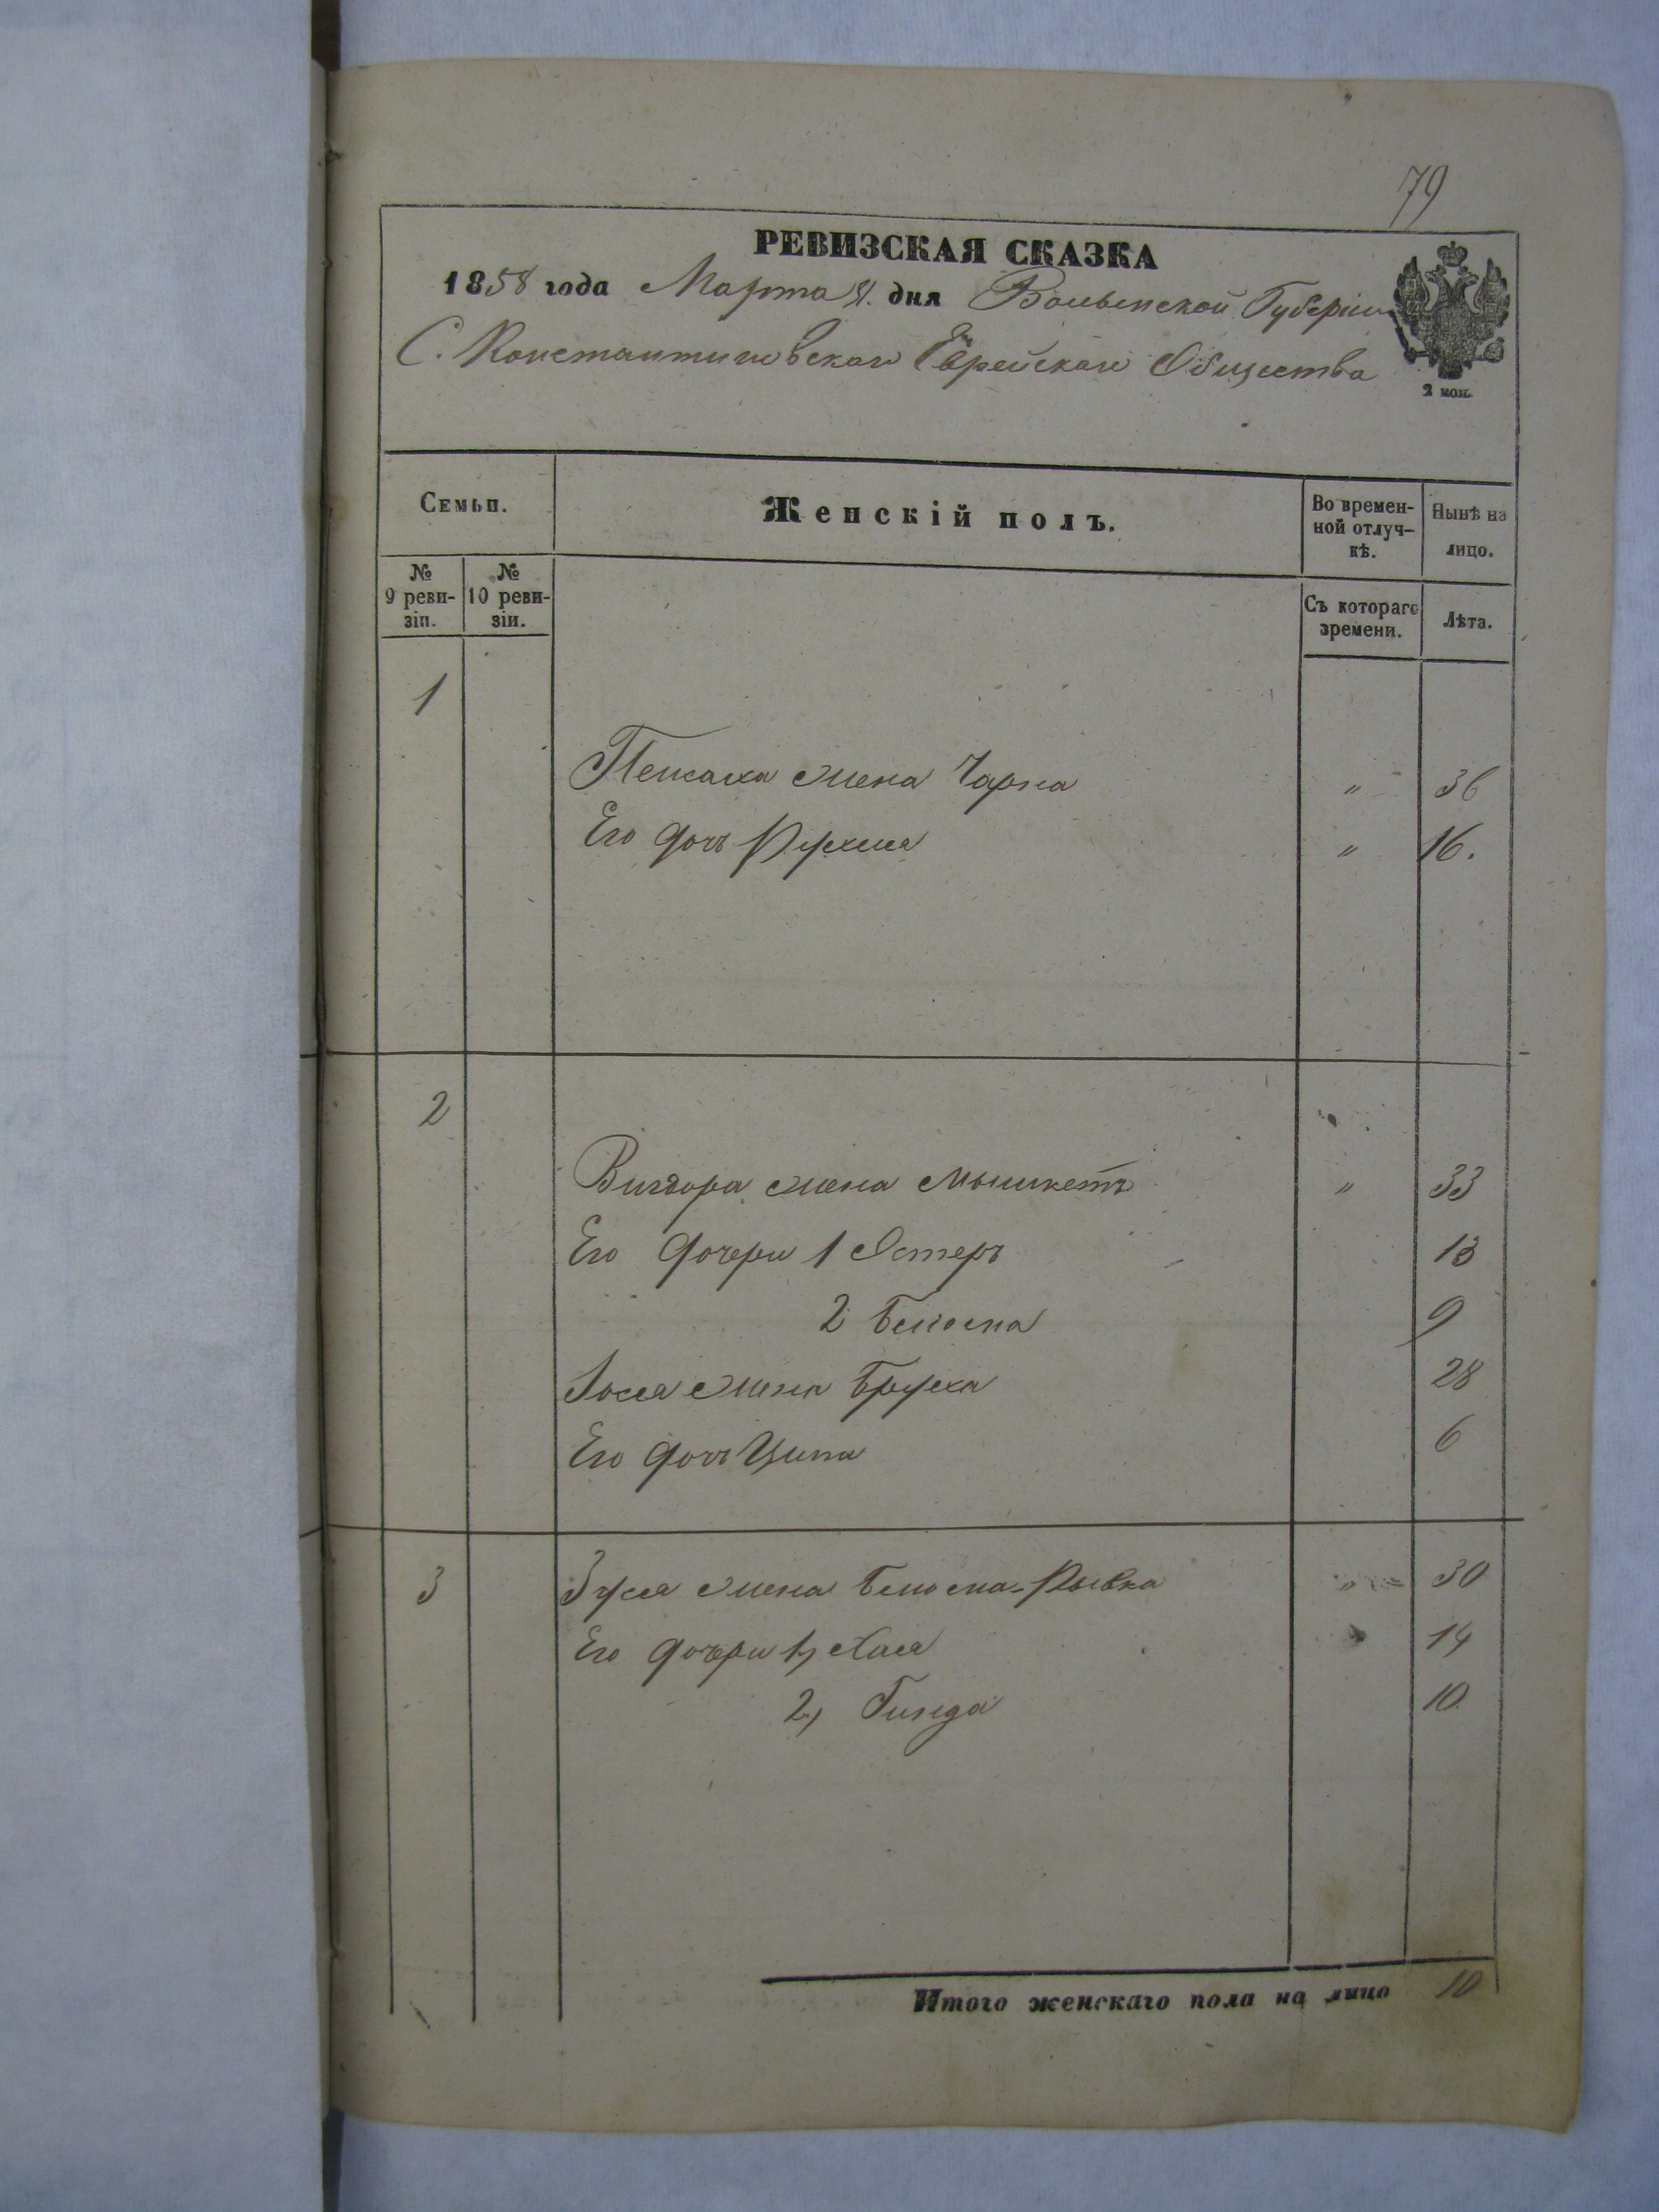 79
РЕВИЗСКАЯ СКАЗКА
1858 года Марта 8. дня Волынской Губерніи
С. Константиновскаго Еврейскаго Общества
2 коп.
Семьи.
Женскій полъ.
Во времен-
ной отлуч-
кѣ.
Нынѣ на
лицо.
№
9 реви-
зіи.
№
10 реви-
зіи.
Съ котораго
времени.
Лѣта.
1
Пейсаха жена Чарна " 36
Его дочь Рухля " 16.
2
Вигдора жена " 33
Его дочери 1 Эстеръ 13
2 Бейла 9
Іося жена Бруха 28
Его дочь Ципа 6
3 Зуся жена Рывка " 30
Его дочери 1) Хая 14
2) Гинда 10
Итого женскаго пола на лицо 10